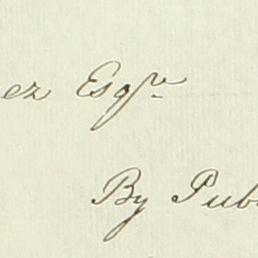 ez Esqr.
By Pub